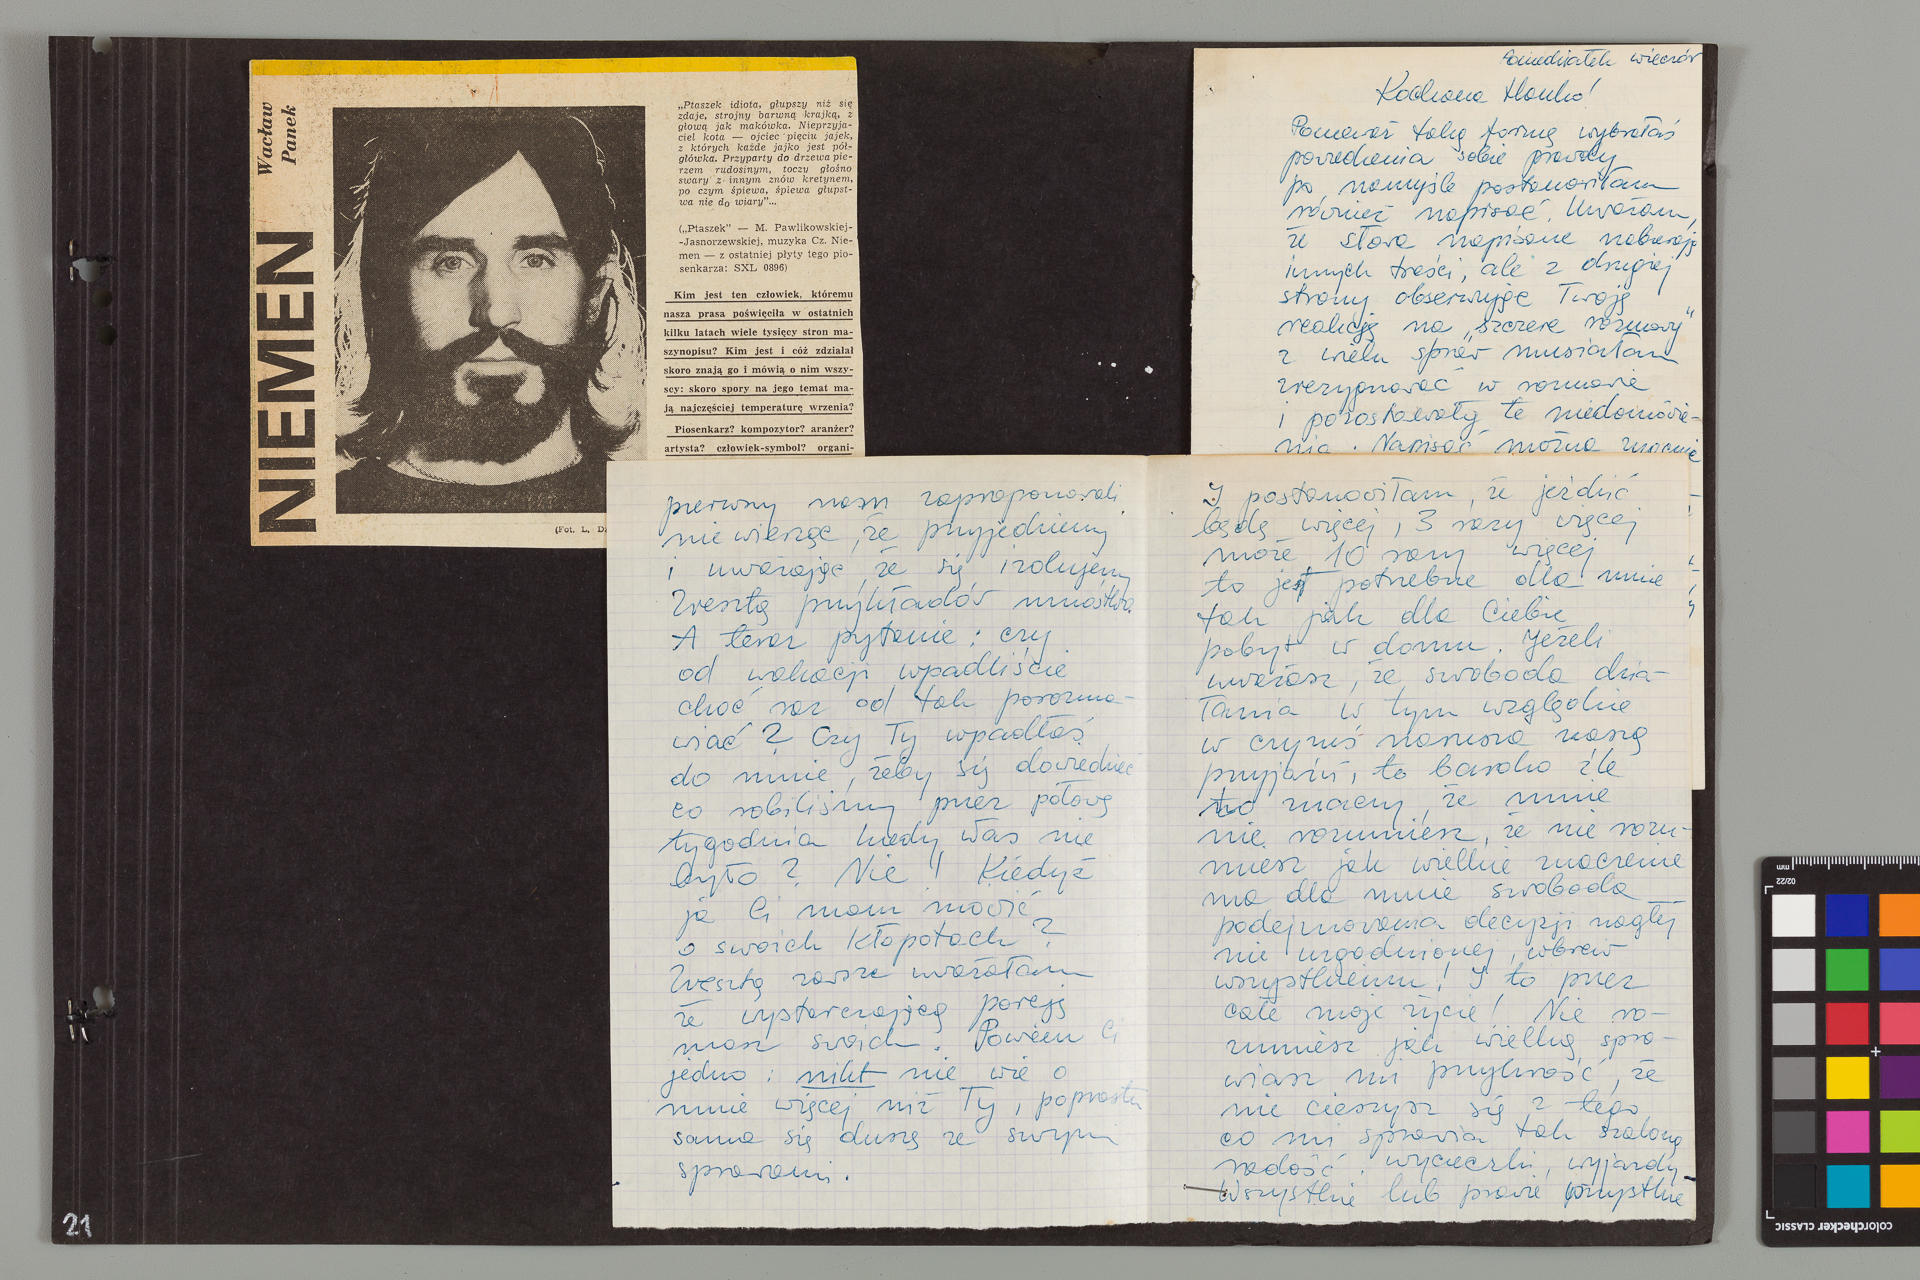 Wacław
Panek
NIEMEN
„Ptaszek idiota, głupszy niż się
zdaje, strojny barwną krajką, z
głową jak makówka. Nieprzyja-
ciel kota — ojciec pięciu jajek,
z których każde jajko jest pół-
główka. Przyparty do drzewa pie-
rzem rudosinym, toczy głośno
swary z innym znów kretynem,
po czym śpiewa, śpiewa głupst-
wa nie do wiary"...
(„Ptaszek" — M. Pawlikowskiej-
-Jasnorzewskiej, muzyka Cz. Nie-
men — z ostatniej płyty tego pio-
senkarza: SXL 0896)
Kim jest ten człowiek, któremu
nasza prasa poświęciła w ostatnich
kilku latach wiele tysięcy stron ma-
szynopisu? Kim jest i cóż zdziałał
skoro znają go i mówią o nim wszy-
scy: skoro spory na jego temat ma-
ją najczęściej temperaturę wrzenia?
Piosenkarz? kompozytor? aranżer?
artysta? człowiek-symbol? organi-
(Fot. L. Dz
Poniedziałek wieczór
Kochana Hanko!
Ponieważ taką formę wybrałaś
powiedzenia sobie prawdy
po namyśle postanowiłam
również napisać. Uważam,
że słowa napisane nabierają
innych treści, ale z drugiej
strony obserwując Twoją
reakcję na „szczere rozmowy"
z wielu spraw musiałam
zrezygnować w rozmowie
i pozostawały te niedomówie-
nia. Napisać można
pierwszy nam zaproponowali
nie wierząc, że przyjedziemy
i uważając, że się izolujemy
Zresztą przykładów mnóstwo.
A teraz pytanie: czy
od wakacji wpadliście
choć raz od tak porozma-
wiać? Czy Ty wpadłaś
do mnie, żeby się dowiedzieć
co robiliśmy przez połowę
tygodnia kiedy Was nie
było? Nie! Kiedyż
ja Ci mam mówić
o swoich kłopotach?
Zresztą zawsze uważałam
że wystarczającą porcję
masz swoich. Powiem Ci
jedno: nikt nie wie o
mnie więcej niż Ty, poprostu
sama się duszę ze swymi
sprawami.
I postanowiłam, że jeździć
będę więcej, 3 razy więcej
może 10 razy więcej
to jest potrzebne dla mnie
tak jak dla Ciebie
pobyt w domu. Jeżeli
uważasz, że swoboda dzia-
łania w tym względzie
w czymś narusza naszą
przyjaźń, to bardzo źle
to znaczy, że mnie
nie rozumiesz, że nie rozu-
miesz jak wielkie znaczenie
ma dla mnie swoboda
podejmowania decyzji nagłej
nie uzgodnionej, wbrew
wszystkiemu! I to przez
całe moje życie! Nie ro-
zumiesz jak wielką spra-
wiasz mi przykrość, że
nie cieszysz się z tego
co mi sprawia tak szaloną
radość. wycieczki, wyjazdy
Wszystkie lub prawie wszystkie
21
mm
02/22
colorchecker CLASSIC